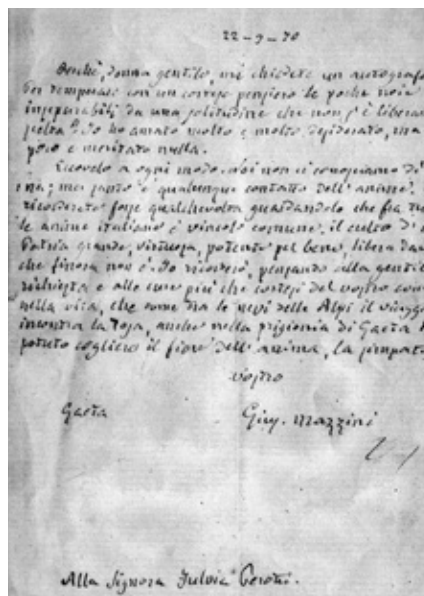 22-9-70
Perchè, donna gentile, mi chiedete un autografo
Per temperare con un cortese pensiero le poche noie
inseparabili da una solitudine che non s'è libera
scelta? Io ho amato molto e molto desiderato, ma
poco e meritato nulla.
Eccovelo a ogni modo. Noi non ci conosciamo di
ma; ma santo è qualunque contatto dell'anime.
ricorderete forse qualchevolta guardandolo che fra
le anime italiane è vincolo comune, il culto di
Patria grande, virtuosa, potente pel bene, libera
che finora non è. Io ricorderò, pensando alla gentil
richiesta e alle cure più che cortesi del vostro
nella vita, che come tra le nevi delle Alpi il viagg
incontra la rosa, anche nella prigionia di Gaeta
potuto cogliere il fiore dell'anima, la simpat
Vostro
Gaeta Gius. Mazzini
Alla Signora Fulvia Perotti.